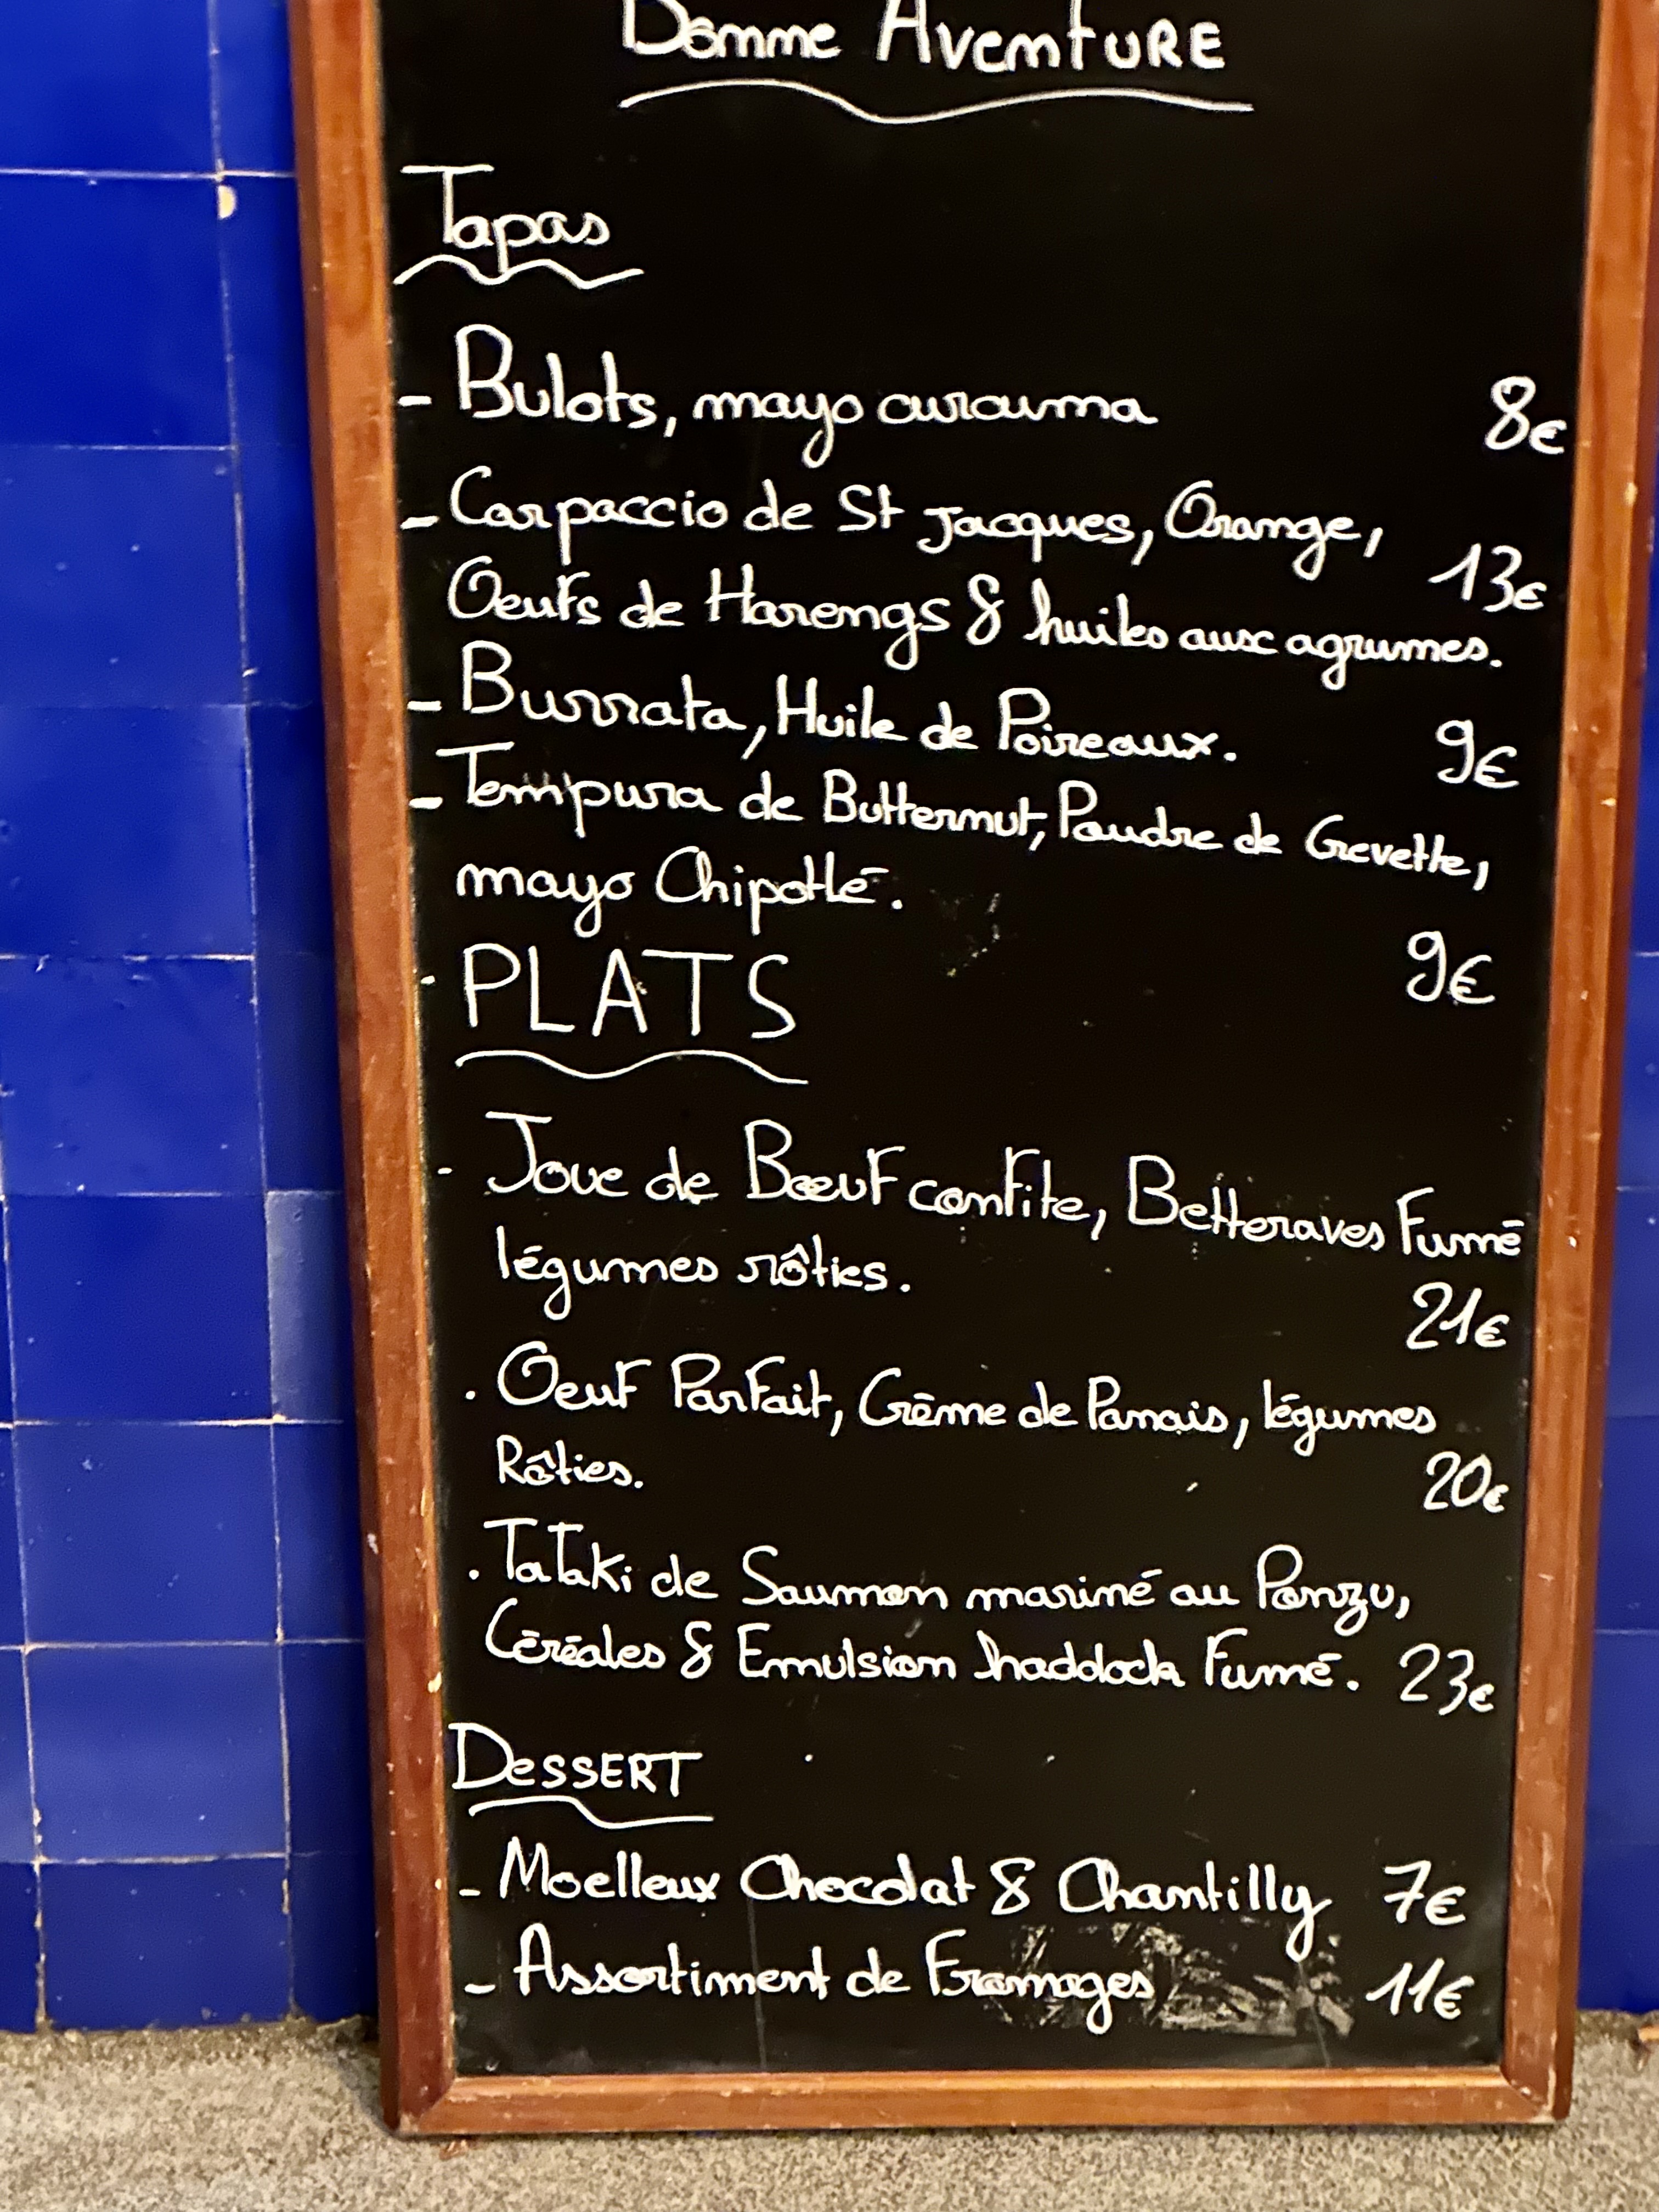 Bonne Aventure
Tapas
- Bulots, mayo curcuma 8€
- Carpaccio de St Jacques, Orange,
13€
Oeufs de Harengs & huiles aux agrumes.
- Burrata, Huile de Poireaux. 9€
- Tempura de Butternut, Poudre de Crevette,
mayo Chipotlé.
9€
PLATS
- Joue de Bœuf confite, Betteraves Fumé
légumes rôties.
21€
. Oeuf Parfait, Crème de Panais, légumes
Rôties. 20€
. Tataki de Saumon mariné au Ponzu,
Céréales & Emulsion haddock Fumé. 23€
DESSERT
- Moelleux Chocolat & Chantilly 7€
- Assortiment de Fromages 11€